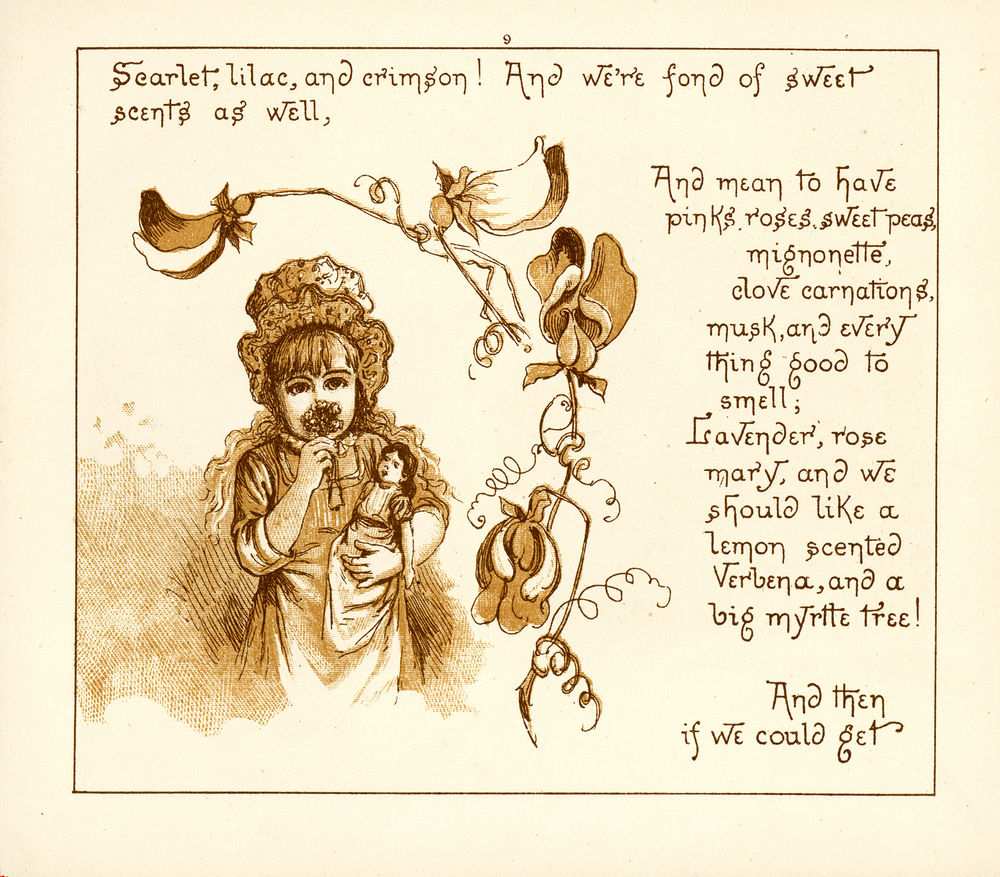 9
Scarlet, lilac, and crimson! And we're fond of sweet
scents as well,
And mean to have
pinks, roses, sweet peas,
mignonette,
clove carnations,
musk, and every
thing good to
smell;
Lavender, rose
mary, and we
should like a
lemon scented
Verbena, and a
big myrtle tree!
And then
if we could get